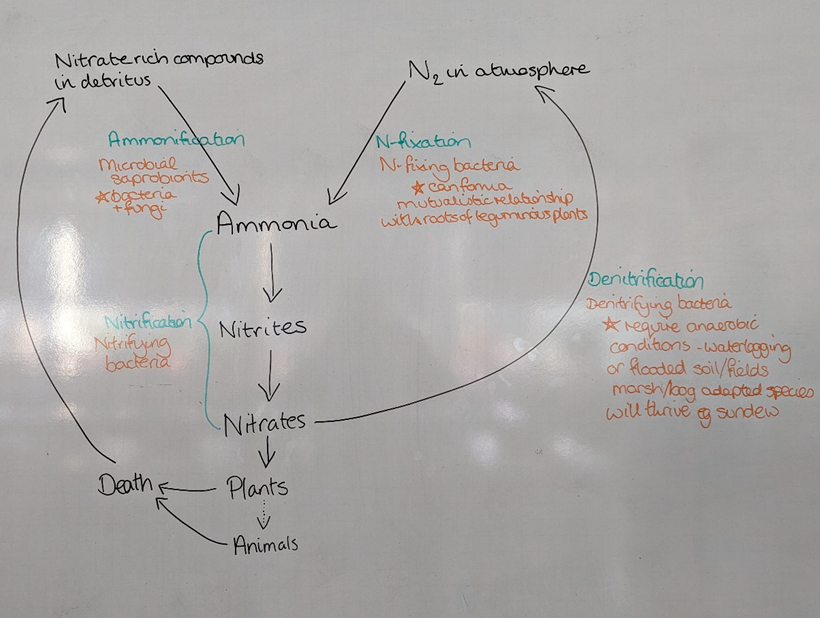 Nitrate rich compounds
in detritus
N₂ in atmosphere
Ammonification
Microbial
saprobionts
☆ bacteria
+ fungi
N-fixation
N-fixing bacteria
☆ can form a
mutualistic relationship
with roots of leguminous plants
Ammonia
Nitrification
Nitrifying
bacteria
Nitrites
Nitrates
Denitrification
Denitrifying bacteria
☆ require anaerobic
conditions - waterlogging
or flooded soil/fields
marsh/bog adapted species
will thrive eg sundew
Death
Plants
Animals